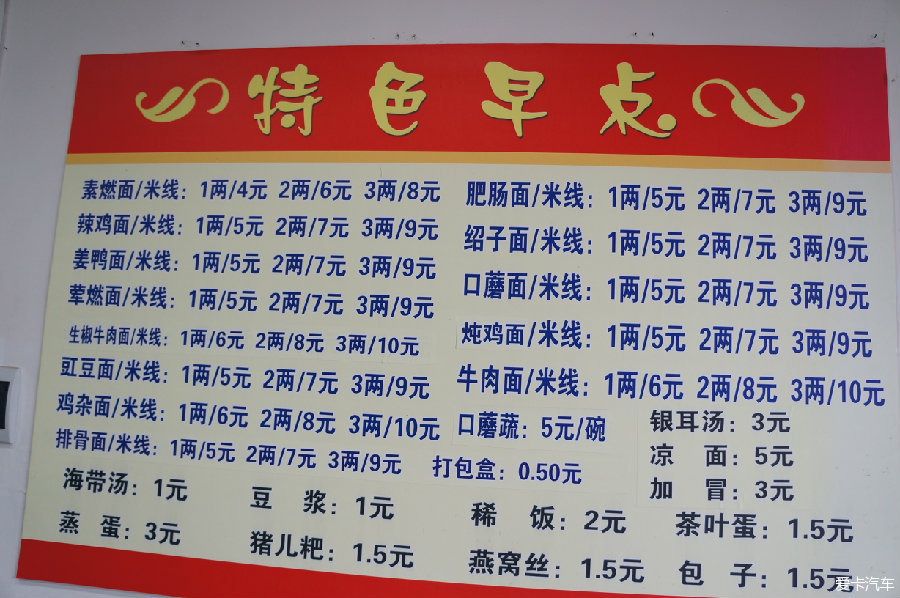 特色早点
素燃面/米线：1两/4元 2两/6元 3两/8元
辣鸡面/米线：1两/5元 2两/7元 3两/9元
姜鸭面/米线：1两/5元 2两/7元 3两/9元
荤燃面/米线：1两/5元 2两/7元 3两/9元
生椒牛肉面/米线：1两/6元 2两/8元 3两/10元
豇豆面/米线：1两/5元 2两/7元 3两/9元
鸡杂面/米线：1两/6元 2两/8元 3两/10元
排骨面/米线：1两/5元 2两/7元 3两/9元
肥肠面/米线：1两/5元 2两/7元 3两/9元
绍子面/米线：1两/5元 2两/7元 3两/9元
口蘑面/米线：1两/5元 2两/7元 3两/9元
炖鸡面/米线：1两/5元 2两/7元 3两/9元
牛肉面/米线：1两/6元 2两/8元 3两/10元
口蘑蔬：5元/碗
打包盒：0.50元
银耳汤：3元
凉 面：5元
加 冒：3元
海带汤：1元
豆 浆：1元
稀 饭：2元
茶叶蛋：1.5元
蒸 蛋：3元
猪儿粑：1.5元
燕窝丝：1.5元
包 子：1.5元
爱卡汽车